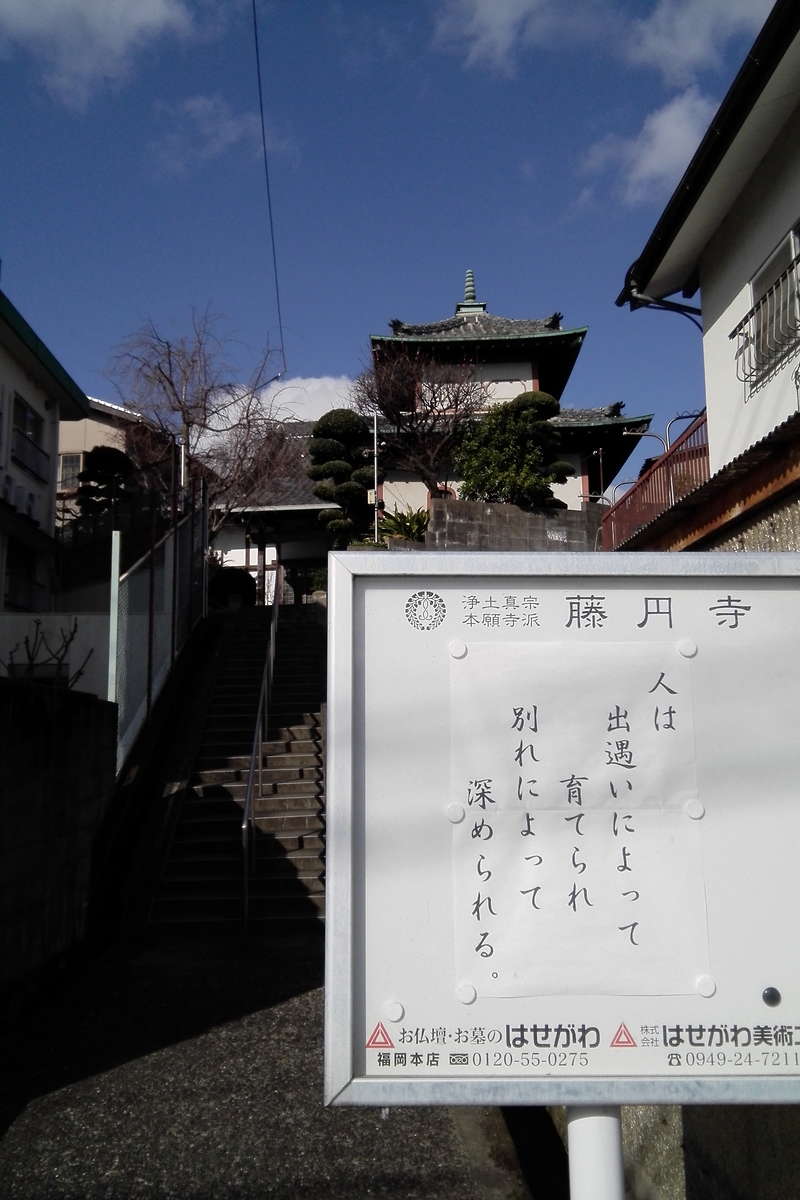 浄土真宗
本願寺派
藤円寺
人は
出遇いによって
育てられ
別れによって
深められる。
お仏壇・お墓のはせがわ
福岡本店 0120-55-0275
株式会社 はせがわ美術工
☎0949-24-7211